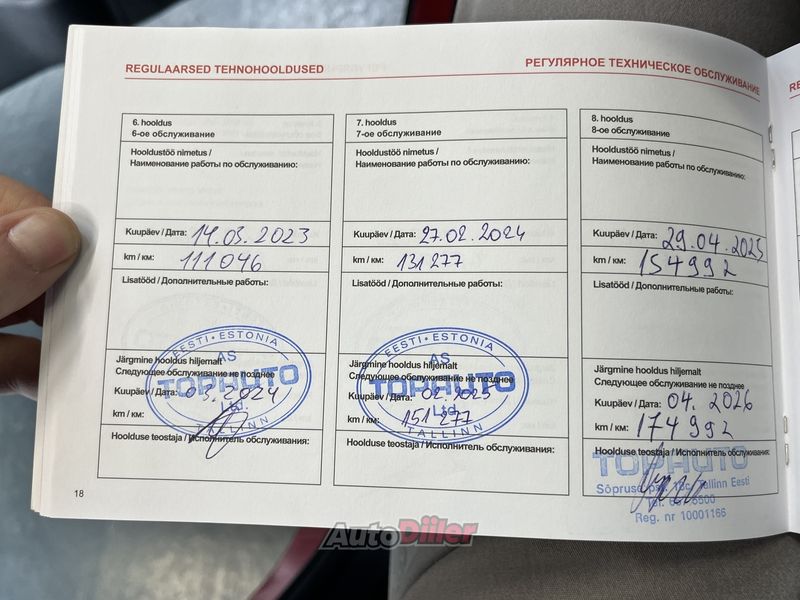 REGULAARSED TEHNOHOOLDUSED
РЕГУЛЯРНОЕ ТЕХНИЧЕСКОЕ ОБСЛУЖИВАНИЕ
6. hooldus
6-ое обслуживание
Hooldustöö nimetus /
Наименование работы по обслуживанию:
Kuupäev / Дата: 14.03.2023
km / км: 111046
Lisatööd / Дополнительные работы:
EESTI • ESTONIA
AS
TOPAUTO
TALLINN
Järgmine hooldus hiljemalt
Следующее обслуживание не позднее
Kuupäev / Дата: 03.2024
km / км:
Hoolduse teostaja / Исполнитель обслуживания:
7. hooldus
7-ое обслуживание
Hooldustöö nimetus /
Наименование работы по обслуживанию:
Kuupäev / Дата: 27.02.2024
km / км: 131277
Lisatööd / Дополнительные работы:
EESTI • ESTONIA
AS
TOPAUTO
Ltd.
TALLINN
Järgmine hooldus hiljemalt
Следующее обслуживание не позднее
Kuupäev / Дата: 02.2025
km / км: 151277
Hoolduse teostaja / Исполнитель обслуживания:
8. hooldus
8-ое обслуживание
Hooldustöö nimetus /
Наименование работы по обслуживанию:
Kuupäev / Дата: 29.04.2025
km / км: 154992
Lisatööd / Дополнительные работы:
Järgmine hooldus hiljemalt
Следующее обслуживание не позднее
Kuupäev / Дата: 04. 2026
km / км: 174992
Hoolduse teostaja / Исполнитель обслуживания:
TOPAUTO
Tallinn Eesti
Reg. nr 10001166
18
AutoDiiler